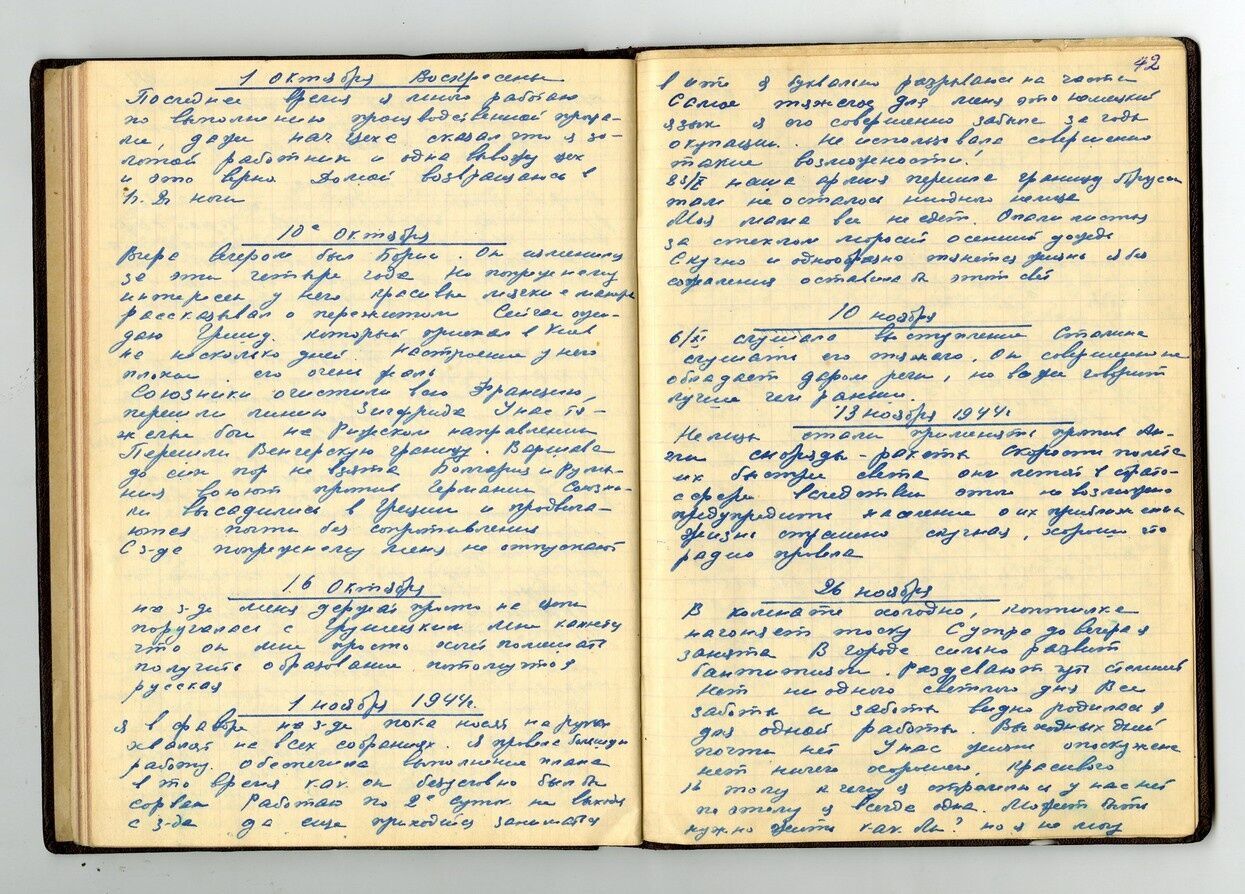 1 Октября Воскресенье
Последнее время я много работаю
по выполнению производственной програ-
мы, даже нач цеха сказал что я зо-
лотой работник и одна вывожу цех
и это верно Домой возвращаюсь в
ч. 2 ночи
10е Октября
Вчера вечером был Борис. Он изменился
за эти четыре года Но попрежнему
интересен у него красивые мягкие манеры
рассказывал о пережитом Сейчас ожи-
даю Гришу. который приехал в Киев
на несколько дней Настроение у него
плохое. его очень жаль
Союзники очистили всю Францию,
перешли линию Зигфрида У нас тя-
желые бои на Рижском направлении
Перешли Венгерскую границу. Варшава
до сих пор не взята Болгария и Румы-
ния воюют против Германии Союзни-
ки высадились в Греции и продвига-
ются почти без сопротивления
С з-да попрежнему меня не отпускают
16 Октября
на з-де меня держат просто на цепи
поругалась с мне кажется
что он мне просто хочет помешать
получить образование потому что я
русская
1 ноября 1944г.
я в фаворе на з-де пока носят на руках
хвалят на всех собраниях. Я провела большую
работу. Обеспечила выполнение плана
в то время как он безусловно был бы
сорван Работаю по 2е суток не выходя
с з-да да еще приходится заниматься
42
в ин-те я буквально разрываюсь на части
Самое тяжелое для меня это немецкий
язык я его совершенно забыла за годы
окупации. Не использовала совершенно
такие возможности!
23/X наша армия перешла границу
там не осталось ни одного немца
Моя мама все не едет. Опали листья
за стеклом моросит осенний дождь
Скучно и однообразно тянется жизнь я без
сожаления оставила б этот свет
10 ноября
6/XI слушала выступление Сталина
слушать его тяжело. Он совершенно не
обладает даром речи, но все же говорит
лучше чем раньше.
13 ноября 1944г
Немцы стали применять против Ан-
глии снаряды-ракеты Скорость полета
их быстрее света они летят в страто-
сфере вследствии этого невозможно
предупредить население о их приближении
Жизнь страшно скучная, хорошо что
радио провела
26 ноября
В комнате холодно, коптилка
нагоняет тоску С утра до вечера я
занята В городе сильно развит
бандитизм. Раздевают
Нет ни одного светлого дня Все
заботы и заботы видно родилась я
для одной работы. Выходных дней
почти нет У нас жизнь опоскужена
нет ничего хорошего, красивого
то к чему я стремлюсь у нас нет
по этому я всегда одна. Может быть
нужно жить как Вы? но я не могу